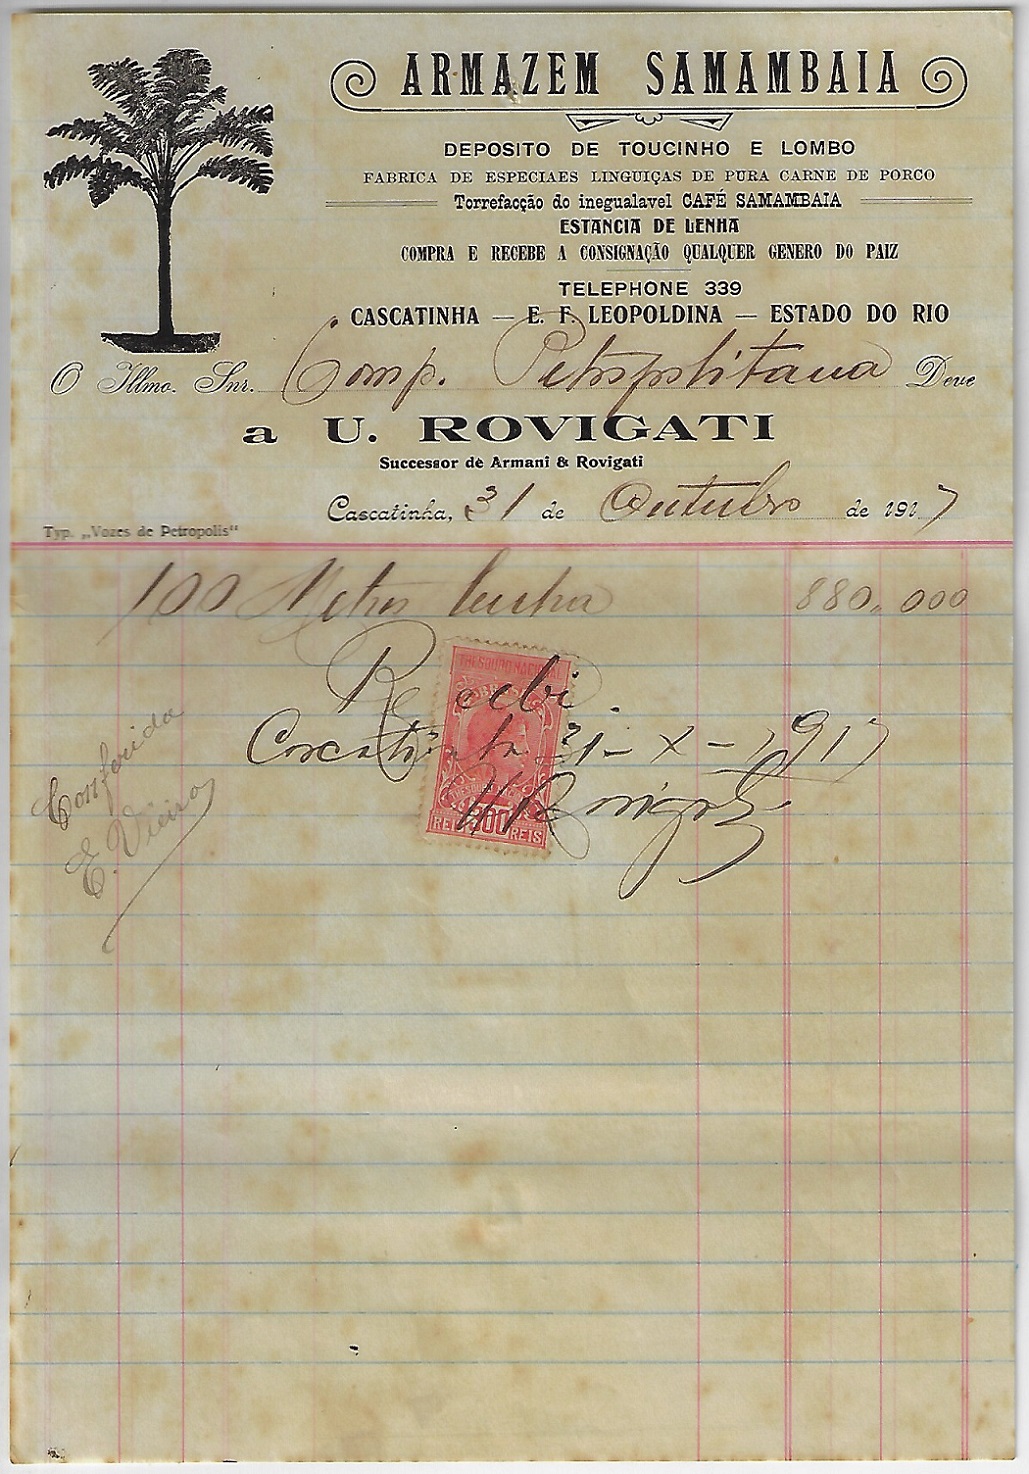 ARMAZEM SAMAMBAIA
DEPOSITO DE TOUCINHO E LOMBO
FABRICA DE ESPECIAES LINGUIÇAS DE PURA CARNE DE PORCO
Torrefacção do inegualavel CAFÉ SAMAMBAIA
ESTANCIA DE LENHA
COMPRA E RECEBE A CONSIGNAÇÃO QUALQUER GENERO DO PAIZ
TELEPHONE 339
CASCATINHA — E. F. LEOPOLDINA — ESTADO DO RIO
O Illmo. Snr. Comp. Petropolitana Deve
a U. ROVIGATI
Successor de Armani & Rovigati
Cascatinha, 31 de Outubro de 1917
Typ. „Vozes de Petropolis“
100 Metros lenha 880,000
THESOURO NACIONAL
Recebi
Cascatinha 31-X-1917
Rovigati
300
REIS REIS
Conferida
E. Vieira